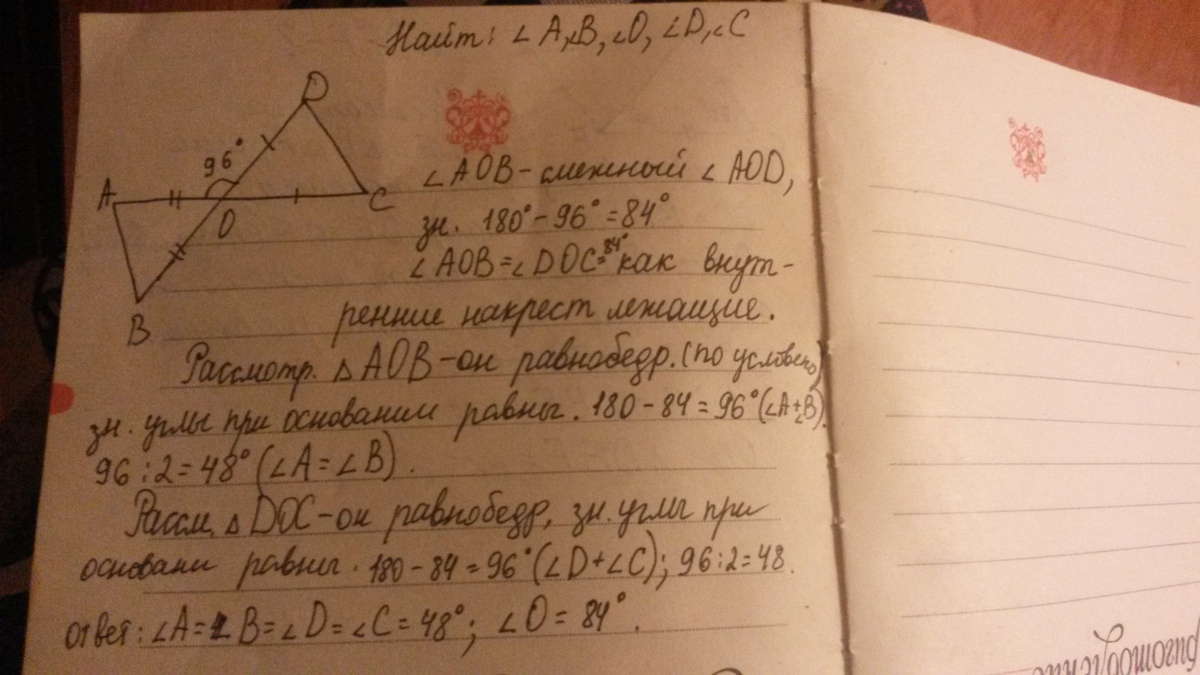 Найт: ∠A,∠B,∠O, ∠D,∠C
D
96°
A
O
C
B
∠AOB - смежный ∠AOD,
зн. 180° - 96° = 84°
∠AOB = ∠DOC = 84° как внут-
ренние накрест лежащие.
Рассмотр. △AOB - он равнобедр. (по условию)
зн. углы при основании равны. 180 - 84 = 96° (∠A+∠B).
96 : 2 = 48° (∠A = ∠B).
Рассм. △DOC - он равнобедр, зн. углы при
основани равны. 180 - 84 = 96° (∠D+∠C); 96:2=48.
ответ: ∠A = ∠B = ∠D = ∠C = 48°; ∠O = 84°.